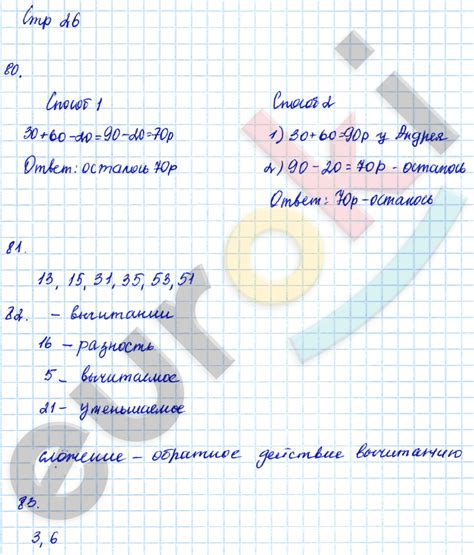 Стр 26
80.
Способ 1
30+60-20=90-20=70р
Ответ: осталось 70р
Способ 2
1) 30+60=90р у Андрея
2) 90-20=70р - осталось
Ответ: 70р - осталось
81.
13, 15, 31, 35, 53, 51
82. - вычитании
16 - разность
5 - вычитаемое
21 - уменьшаемое
сложение - обратное действие вычитанию
83.
3, 6
euroki